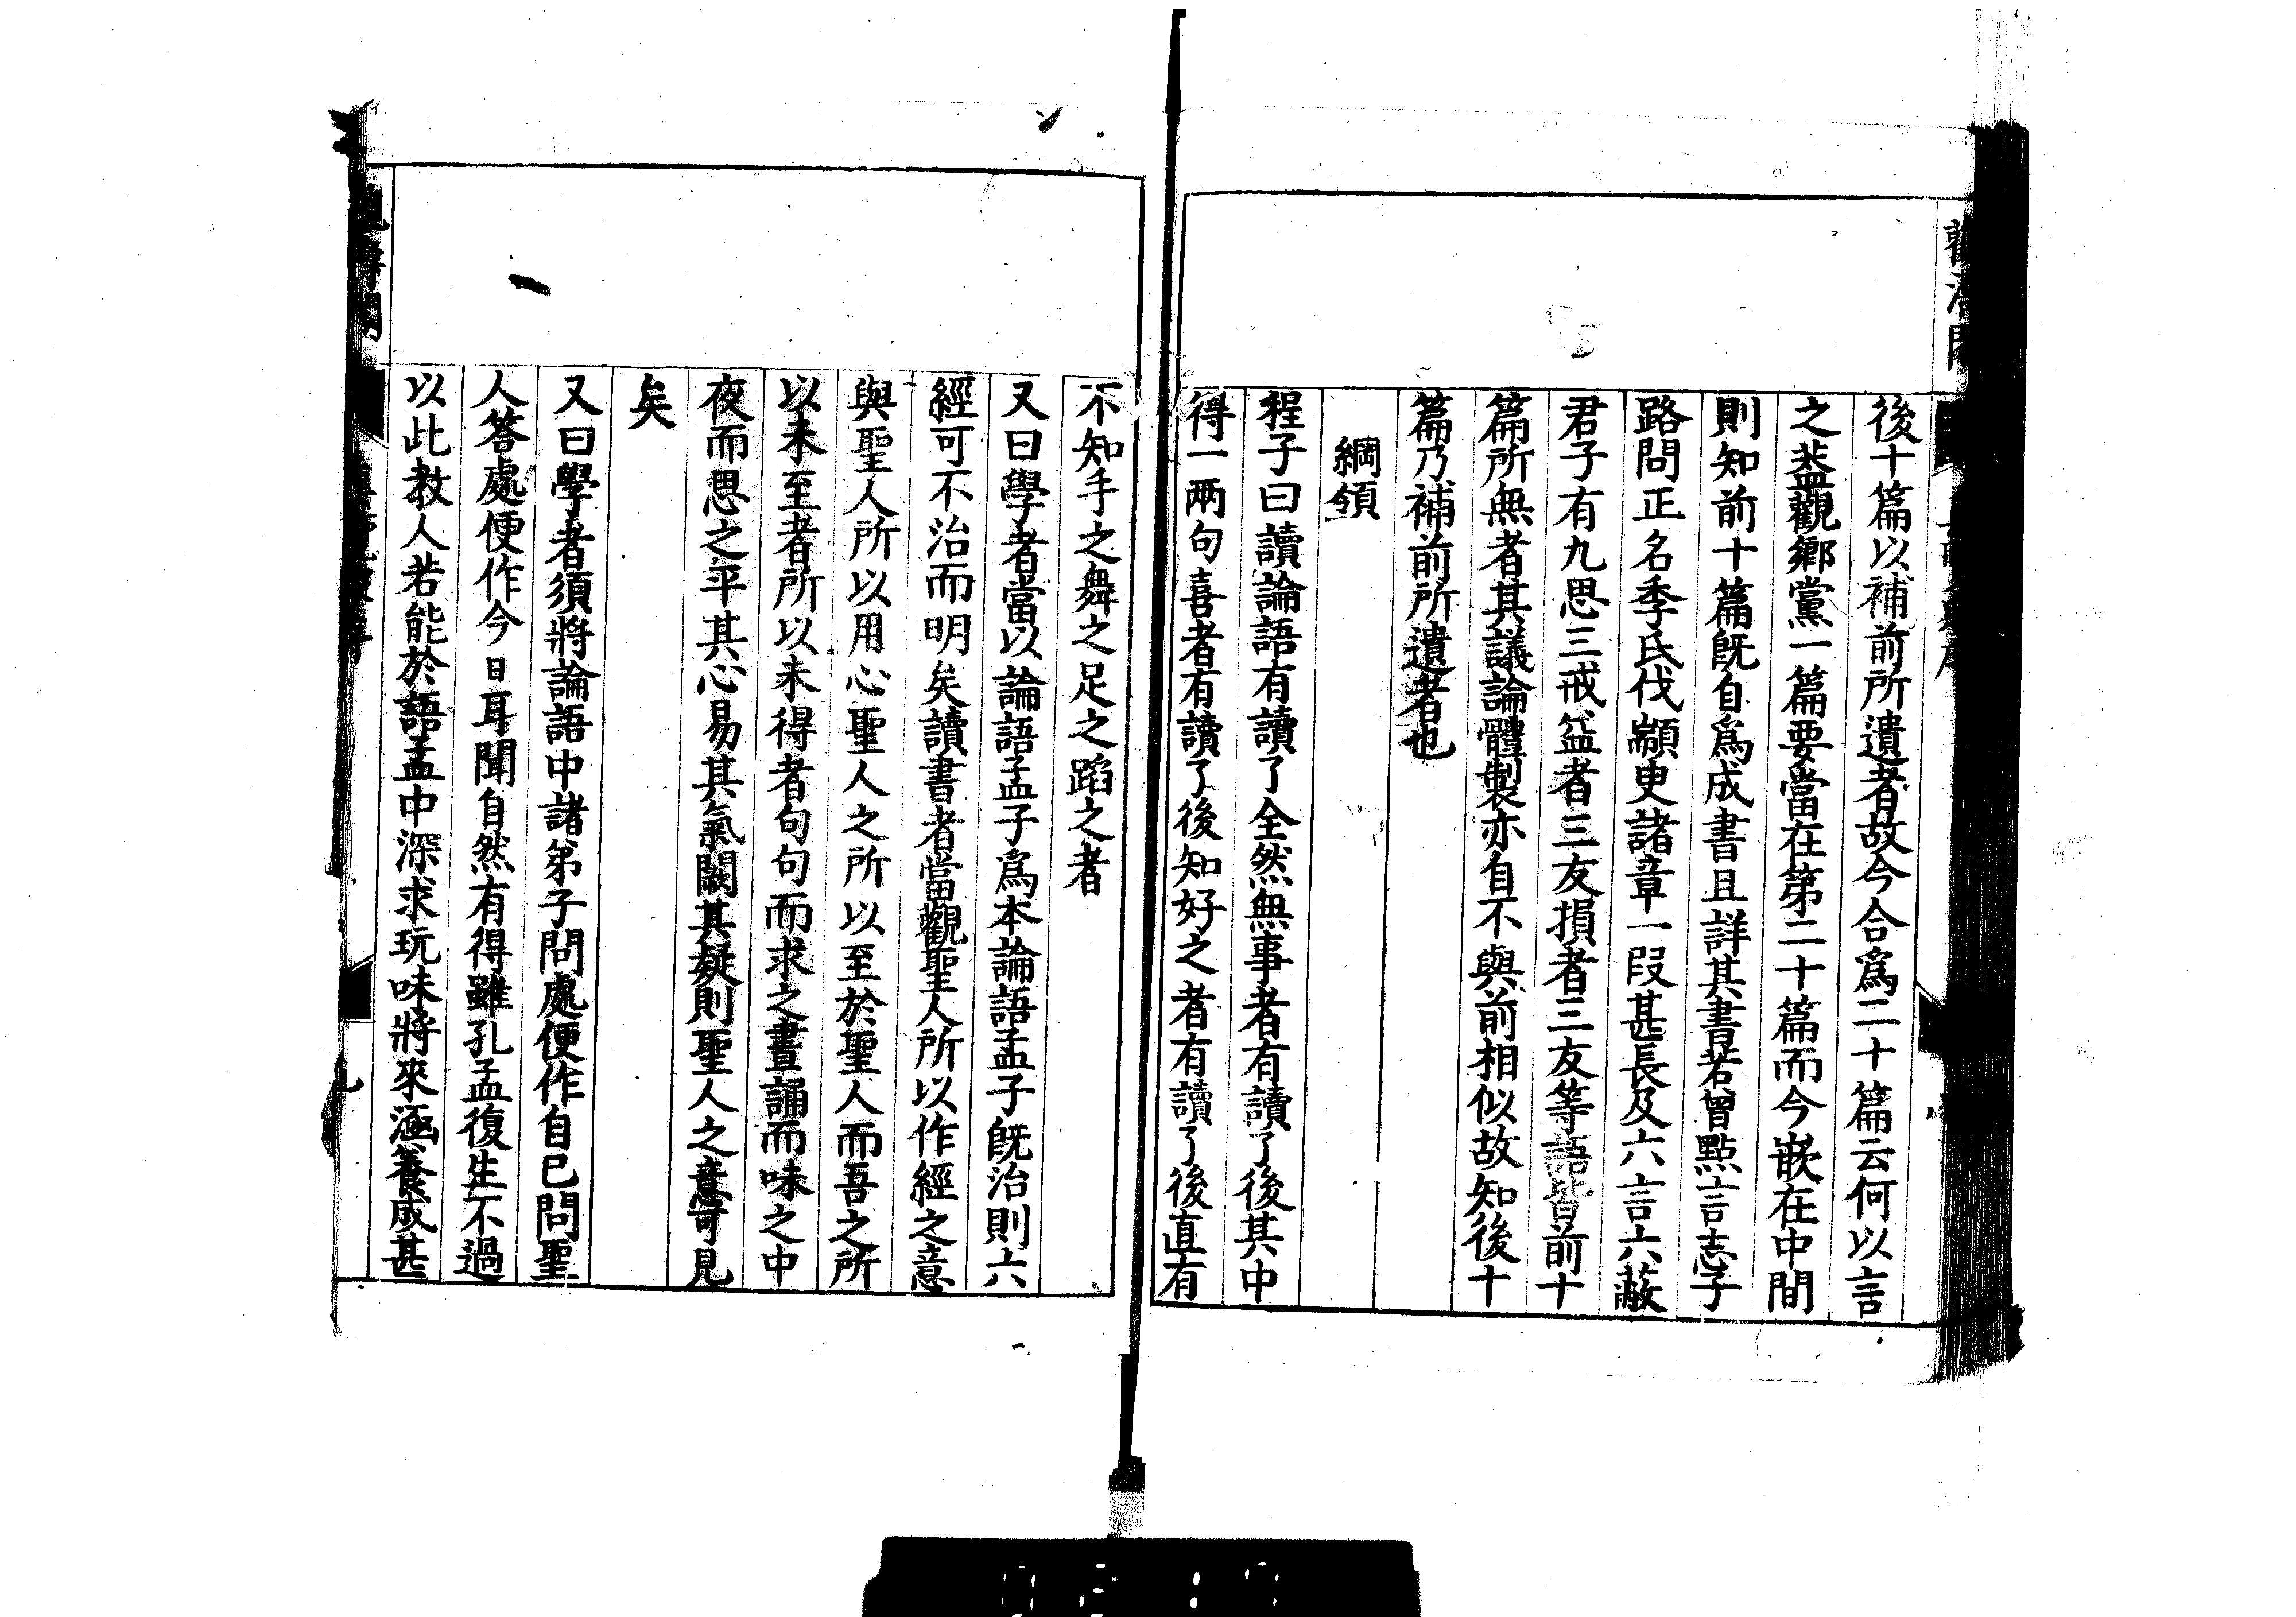 後十篇以補前所遺者故今合爲二十篇云何以言
之葢觀鄉黨一篇要當在第二十篇而今嵌在中間
則知前十篇旣自爲成書且詳其書若曾點言志子
路問正名季氏伐顓臾諸章一段甚長及六言六蔽
君子有九思三戒益者三友損者三友等語皆前十
篇所無者其議論體製亦自不與前相似故知後十
篇乃補前所遺者也
綱領
程子曰讀論語有讀了全然無事者有讀了後其中
得一兩句喜者有讀了後知好之者有讀了後直有
不知手之舞之足之蹈之者
又曰學者當以論語孟子爲本論語孟子旣治則六
經可不治而明矣讀書者當觀聖人所以作經之意
與聖人所以用心聖人之所以至於聖人而吾之所
以未至者所以未得者句句而求之晝誦而味之中
夜而思之平其心易其氣闕其疑則聖人之意可見
矣
又曰學者須將論語中諸弟子問處便作自己問聖
人答處便作今日耳聞自然有得雖孔孟復生不過
以此教人若能於語孟中深求玩味將來涵養成甚
九